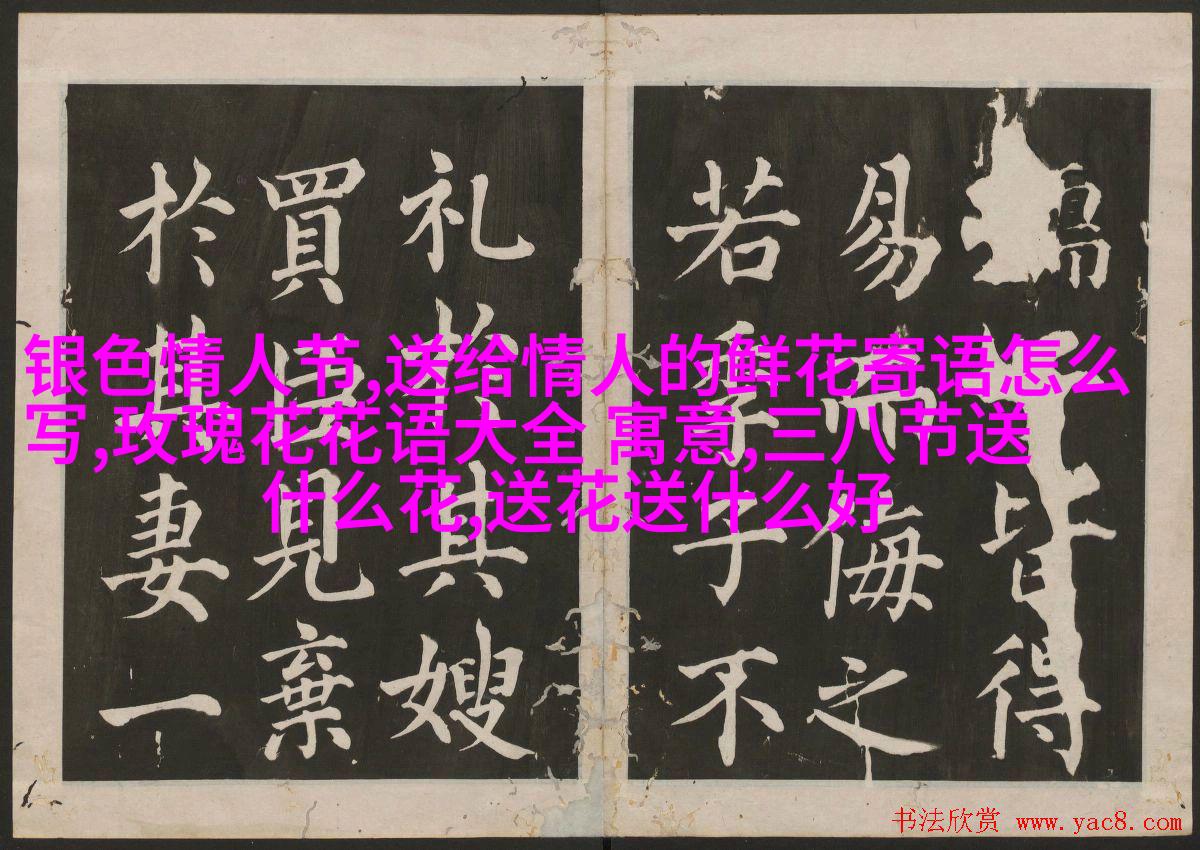 皆得
易而侮之
若季子不
礼於其嫂
買臣見棄
於其妻一
银色情人节,送给情人的鲜花寄语怎么
写,玫瑰花花语大全 寓意,三八节送
什么花,送花送什么好
书法欣赏 www.yac8.com